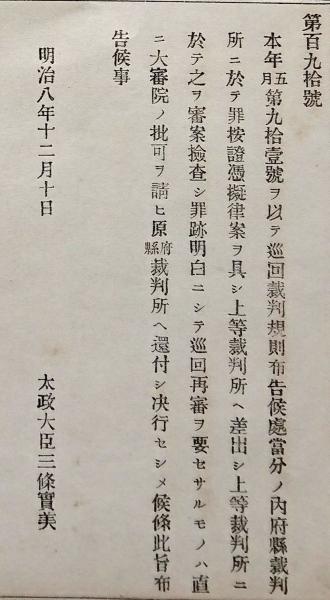 第百九拾號
本年五月第九拾壹號ヲ以テ巡回裁判規則布告候處當分ノ內府縣裁判
所ニ於テ罪按證憑擬律案ヲ具シ上等裁判所ヘ差出シ上等裁判所ニ
於テ之ヲ審案撿查シ罪跡明白ニシテ巡回再審ヲ要セサルモノハ直
ニ大審院ノ批可ヲ請ヒ原府縣裁判所ヘ還付シ決行セシメ候條此旨布
告候事
明治八年十二月十日
太政大臣三條實美